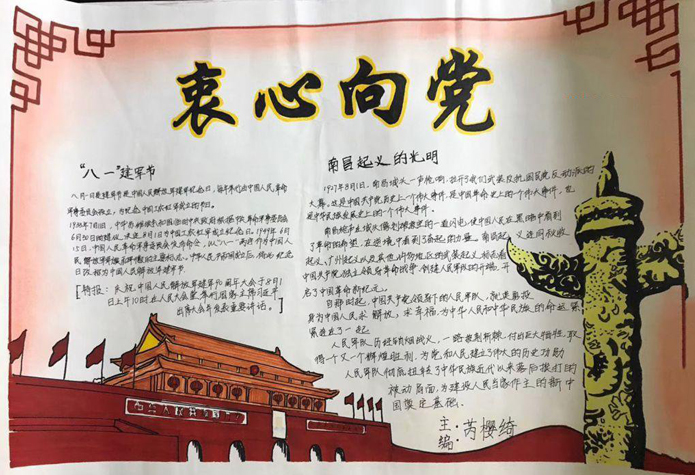 衷心向党
“八一”建军节
八月一日建军节是中国人民解放军建军纪念日，每年八月一日由中国人民革命
军事委员会设立，为纪念中国工农红军成立的节日。
1933年7月11日，中华苏维埃共和国临时中央政府根据中央革命军事委员会
6月30日的建议，决定8月1日为中国工农红军成立纪念日。1949年6月
15日，中国人民革命军事委员会发布命令，以“八一”两字作为中国人
民解放军军旗和军徽的主要标志。中华人民共和国成立后，将此纪念
日改称为中国人民解放军建军节。
[特报：庆祝中国人民解放军建军90周年大会于8月1
日上午10时在人民大会堂举行国家主席习近平
出席大会并发表重要讲话。]
南昌起义的光明
1927年8月1日，南昌城头一声枪响，拉开了我们党武装反抗国民党反动派的
大幕。这是中国共产党历史上一个伟大事件，是中国革命史上的一个伟大事件，也
是中华民族发展史上的一个伟大事件。
南昌城头的枪声，像划破夜空的一道闪电，使中国人民在黑暗中看到
了革命的希望，在逆境中看到了奋起的力量。南昌起义连同秋收
起义、广州起义以及其他许多地区的武装起义，标志着
中国共产党独立领导革命战争、创建人民军队的开端，开
启了中国革命新纪元。
自那时起，中国共产党领导下的人民军队，就英勇投
身为中国人民求解放、求幸福，为中华人民和中华民族的命运紧
紧连在了一起
人民军队历经硝烟战火，一路披荆斩棘，付出巨大牺牲，取
得一个又一个辉煌胜利，为党和人民建立了伟大的历史功勋
人民军队彻底扭转了中华民族近代以来落后挨打的
被动局面，为建设人民当家作主的新中
国奠定基础。
主编：芮樱绮